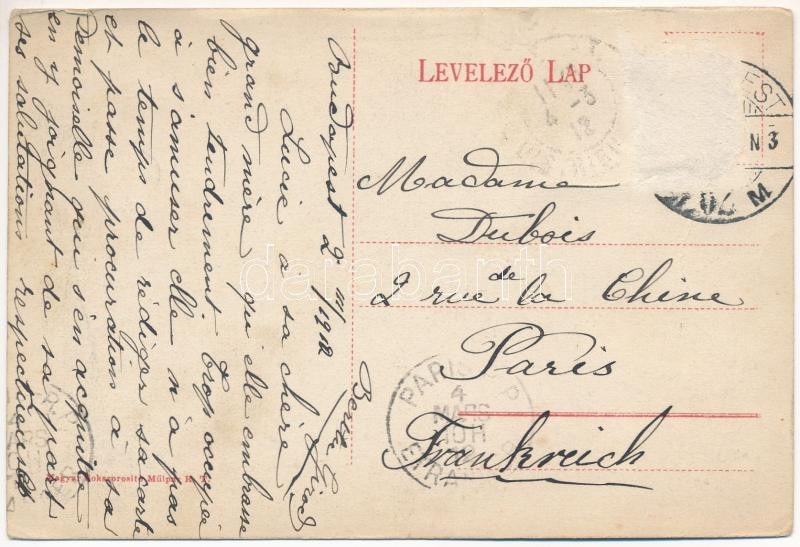 LEVELEZŐ LAP
Budapest 2 III/1912
Lucie a sa chère
grand mère qu'elle embrasse
bien tendrement. Trop occupée
à s'amuser elle n'a pas
le temps de rédiger sa carte
et passe procuration à sa
Demoiselle qui s'en acquitte
en y joignant de sa part
ses salutations respectueuses
Berthe
Madame
Dubois
2 rue de la Chine
Paris
Frankreich
PARIS
4
MARS
ETRANGER
EST
N3
M